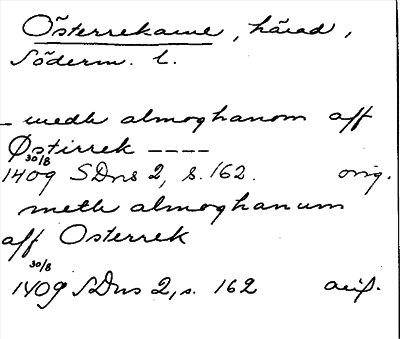 Österrekarne, härad,
Söderm. l.
_ medh almoghanom aff
Østirrek ----
30/8
1409 SDns 2, s. 162. orig.
meth almoghanum
aff Osterrek
30/8
1409 SDns 2, s. 162